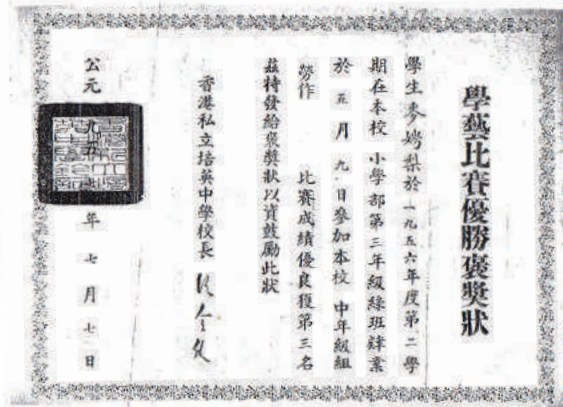 學藝比賽優勝褒獎狀
學生麥嫣梨於一九五六年度第二學
期在本校 小學部第三年級綠班肄業
於 五 月 九 日參加本校 中年級組
勞作 比賽成績優良獲第三名
茲特發給褒獎狀以資鼓勵此狀
香港私立培英中學校長
公元一九五七年 七 月 七 日